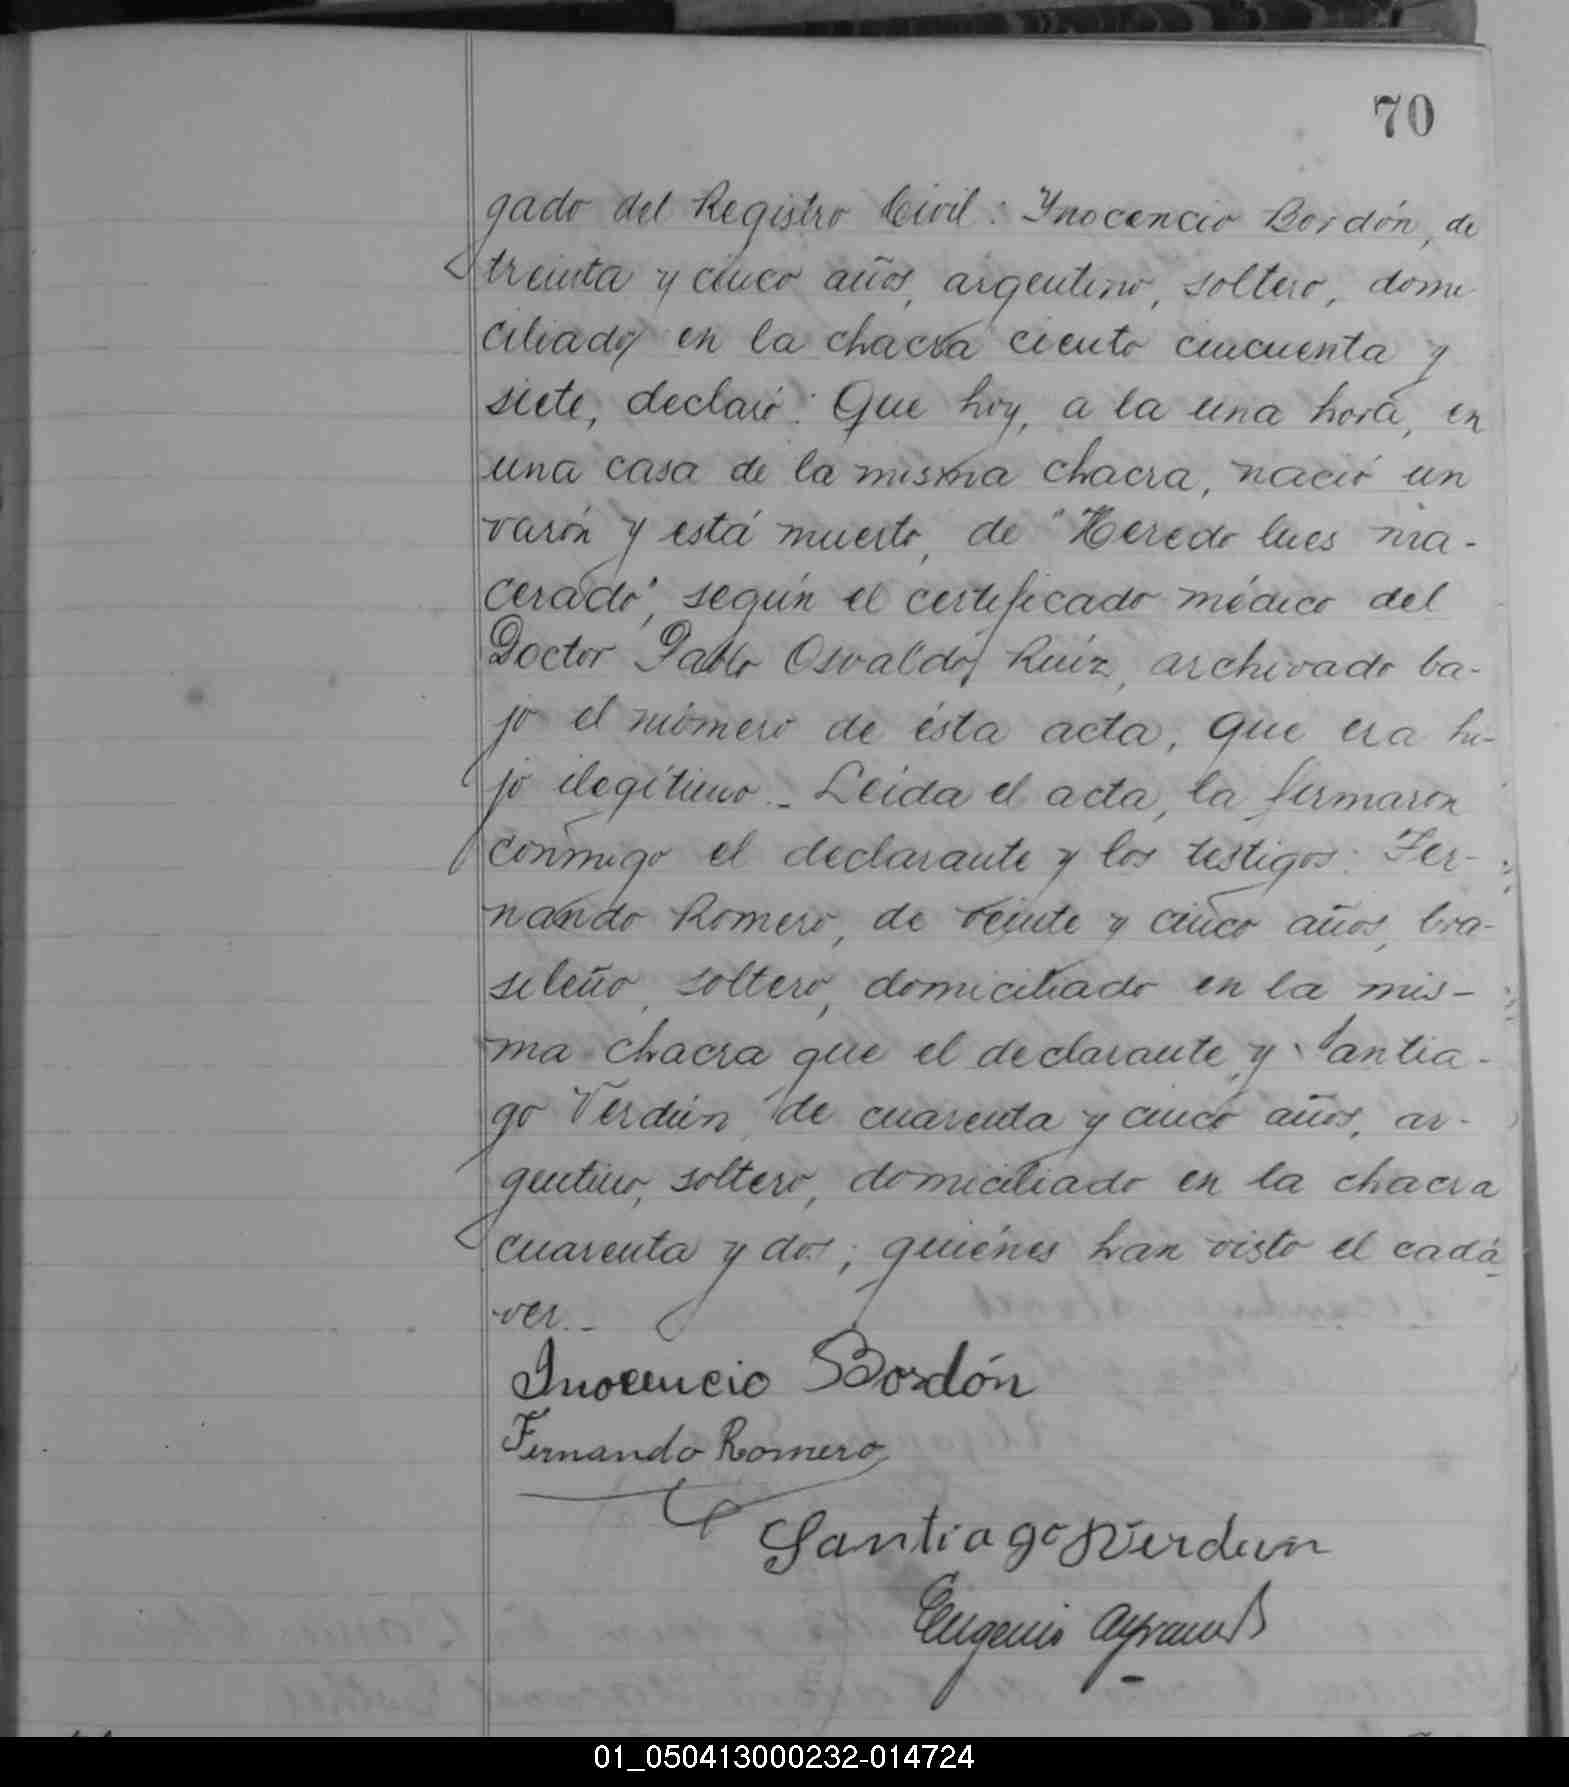 70
gado del Registro Civil: Ynocencio Bordón, de
treinta y cinco años, argentino, soltero, domi
ciliado en la chacra ciento cincuenta y
siete, declaró: Que hoy, a la una hora, en
una casa de la misma chacra, nació un
varón y está muerto, de "Heredo lues ma-
cerado", según el certificado médico del
Doctor Pablo Osvaldo Ruíz, archivado ba-
jo el número de ésta acta, que era hi-
jo ilegítimo.- Leida el acta, la firmaron
conmigo el declarante y los testigos: Fer-
nando Romero, de veinte y cinco años, bra-
sileño, soltero, domiciliado en la mis-
ma chacra que el declarante y Santia-
go Verdún, de cuarenta y cinco años, ar-
gentino, soltero, domiciliado en la chacra
cuarenta y dos; quiénes han visto el cadá
ver.-
Inocencio Bordón
Fernando Romero
Santiago Verdun
Eugenio
01_050413000232-014724